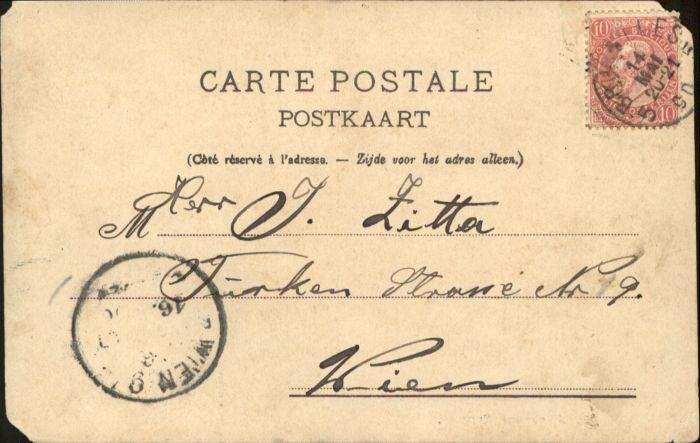 CARTE POSTALE
POSTKAART
(Côté réservé à l'adresse. — Zijde voor het adres alleen.)
10 10
14
MAI
20-21
Herr
M J. Zitta
Türken Strasse Nr 9.
Wien
WIEN 9
16.